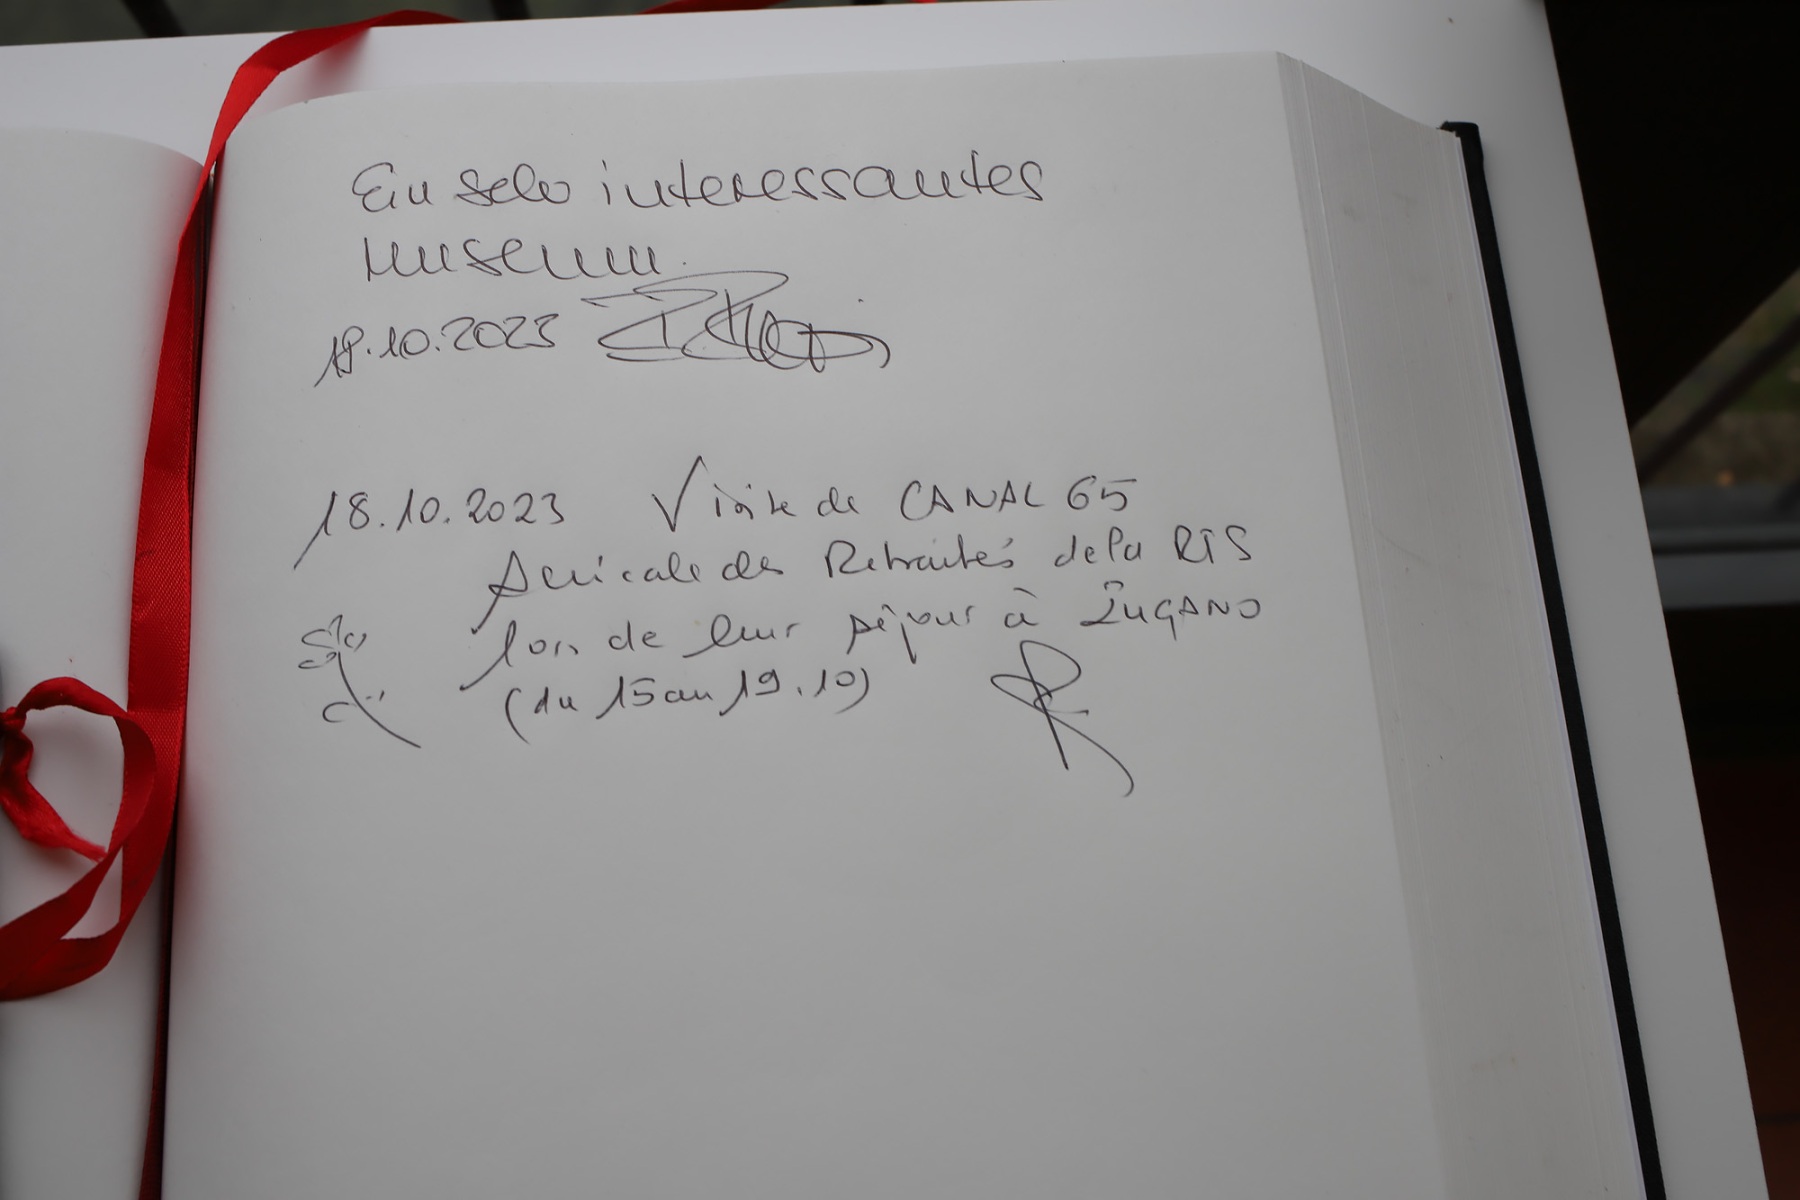 Ein sehr interessantes
Museum.
18.10.2023
18.10.2023 Visite de CANAL 65
Amicale des Retraités de la RTS
lors de leur séjour à LUGANO
(du 15 au 19.10)